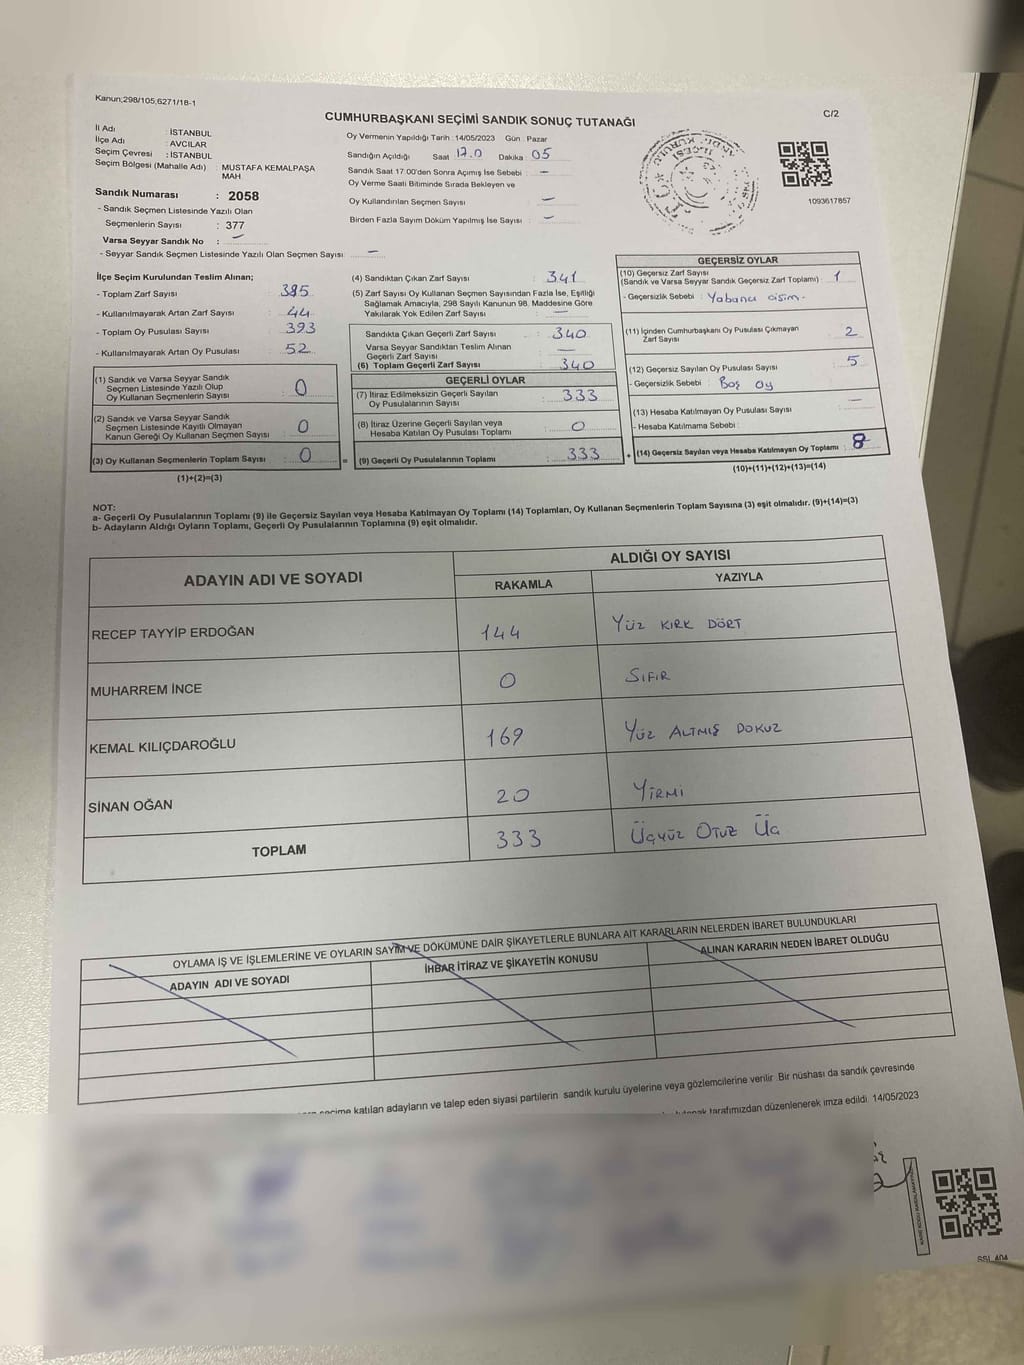 Kanun;298/105,6271/18-1
C/2
CUMHURBAŞKANI SEÇİMİ SANDIK SONUÇ TUTANAĞI
İl Adı : İSTANBUL
İlçe Adı : AVCILAR
Seçim Çevresi : İSTANBUL
Seçim Bölgesi (Mahalle Adı) : MUSTAFA KEMALPAŞA MAH
Sandık Numarası : 2058
- Sandık Seçmen Listesinde Yazılı Olan
Seçmenlerin Sayısı : 377
Varsa Seyyar Sandık No : —
- Seyyar Sandık Seçmen Listesinde Yazılı Olan Seçmen Sayısı: —
Oy Vermenin Yapıldığı Tarih : 14/05/2023 Gün : Pazar
Sandığın Açıldığı Saat 17.0 Dakika 05
Sandık Saat 17.00'den Sonra Açımış İse Sebebi : —
Oy Verme Saati Bitiminde Sırada Bekleyen ve
Oy Kullandırılan Seçmen Sayısı : —
Birden Fazla Sayım Döküm Yapılmış İse Sayısı : —
1093617857
İlçe Seçim Kurulundan Teslim Alınan;
- Toplam Zarf Sayısı : 385
- Kullanılmayarak Artan Zarf Sayısı : 44
- Toplam Oy Pusulası Sayısı : 393
- Kullanılmayarak Artan Oy Pusulası : 52
(1) Sandık ve Varsa Seyyar Sandık
Seçmen Listesinde Yazılı Olup
Oy Kullanan Seçmenlerin Sayısı : 0
(2) Sandık ve Varsa Seyyar Sandık
Seçmen Listesinde Kayıtlı Olmayan
Kanun Gereği Oy Kullanan Seçmen Sayısı : 0
(3) Oy Kullanan Seçmenlerin Toplam Sayısı : 0
(1)+(2)=(3)
(4) Sandıktan Çıkan Zarf Sayısı : 341
(5) Zarf Sayısı Oy Kullanan Seçmen Sayısından Fazla İse, Eşitliği
Sağlamak Amacıyla, 298 Sayılı Kanunun 98. Maddesine Göre
Yakılarak Yok Edilen Zarf Sayısı : —
Sandıkta Çıkan Geçerli Zarf Sayısı : 340
Varsa Seyyar Sandıktan Teslim Alınan
Geçerli Zarf Sayısı : —
(6) Toplam Geçerli Zarf Sayısı : 340
GEÇERLİ OYLAR
(7) İtiraz Edilmeksizin Geçerli Sayılan
Oy Pusulalarının Sayısı : 333
(8) İtiraz Üzerine Geçerli Sayılan veya
Hesaba Katılan Oy Pusulası Toplamı : 0
= (9) Geçerli Oy Pusulalarının Toplamı : 333
GEÇERSİZ OYLAR
(10) Geçersiz Zarf Sayısı
(Sandık ve Varsa Seyyar Sandık Geçersiz Zarf Toplamı) : 1
- Geçersizlik Sebebi : Yabancı cisim.
(11) İçinden Cumhurbaşkanı Oy Pusulası Çıkmayan
Zarf Sayısı : 2
(12) Geçersiz Sayılan Oy Pusulası Sayısı : 5
- Geçersizlik Sebebi : Boş oy
(13) Hesaba Katılmayan Oy Pusulası Sayısı : —
- Hesaba Katılmama Sebebi :
+ (14) Geçersiz Sayılan veya Hesaba Katılmayan Oy Toplamı : 8
(10)+(11)+(12)+(13)=(14)
NOT:
a- Geçerli Oy Pusulalarının Toplamı (9) ile Geçersiz Sayılan veya Hesaba Katılmayan Oy Toplamı (14) Toplamları, Oy Kullanan Seçmenlerin Toplam Sayısına (3) eşit olmalıdır. (9)+(14)=(3)
b- Adayların Aldığı Oyların Toplamı, Geçerli Oy Pusulalarının Toplamına (9) eşit olmalıdır.
ADAYIN ADI VE SOYADI
ALDIĞI OY SAYISI
RAKAMLA YAZIYLA
RECEP TAYYİP ERDOĞAN 144 Yüz KIRK DÖRT
MUHARREM İNCE 0 SıFıR
KEMAL KILIÇDAROĞLU 169 Yüz ALTMIŞ DOKUZ
SİNAN OĞAN 20 YİRMİ
TOPLAM 333 Üçyüz OTUZ Üç
OYLAMA İŞ VE İŞLEMLERİNE VE OYLARIN SAYIM VE DÖKÜMÜNE DAİR ŞİKAYETLERLE BUNLARA AİT KARARLARIN NELERDEN İBARET BULUNDUKLARI
ADAYIN ADI VE SOYADI İHBAR İTİRAZ VE ŞİKAYETİN KONUSU ALINAN KARARIN NEDEN İBARET OLDUĞU
seçime katılan adayların ve talep eden siyasi partilerin sandık kurulu üyelerine veya gözlemcilerine verilir. Bir nüshası da sandık çevresinde
tutanak tarafımızdan düzenlenerek imza edildi. 14/05/2023